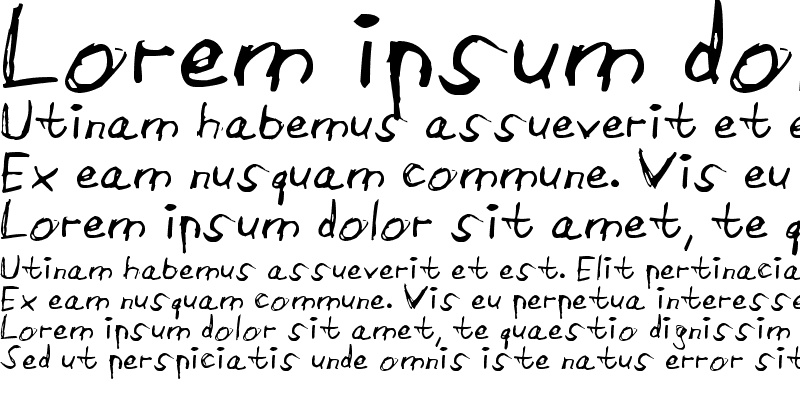 Lorem ipsum do
Utinam habemus assueverit et e
Ex eam nusquam commune. Vis eu
Lorem ipsum dolor sit amet, te q
Utinam habemus assueverit et est. Elit pertinacia
Ex eam nusquam commune. Vis eu perpetua interesse
Lorem ipsum dolor sit amet, te quaestio dignissim
Sed ut perspiciatis unde omnis iste natus error sit